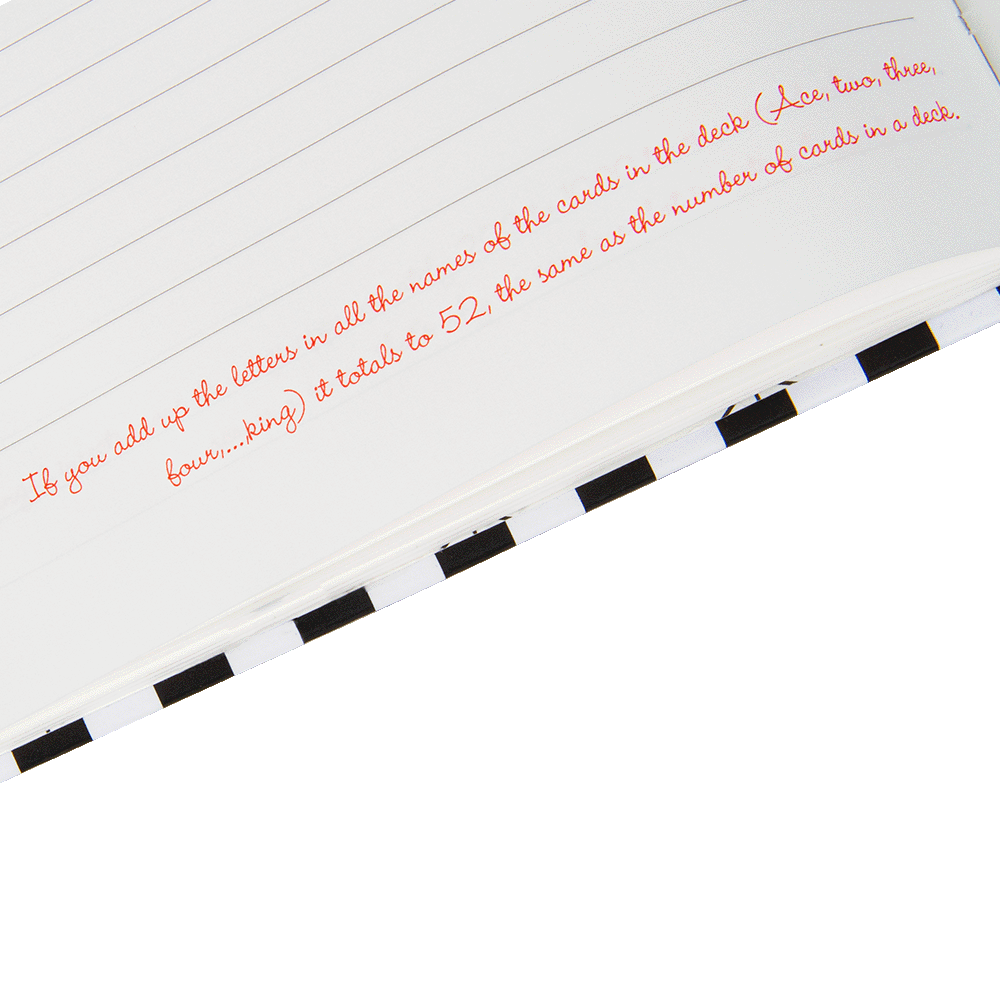 If you add up the letters in all the names of the cards in the deck (Ace, two, three,
four,...,king) it totals to 52, the same as the number of cards in a deck.